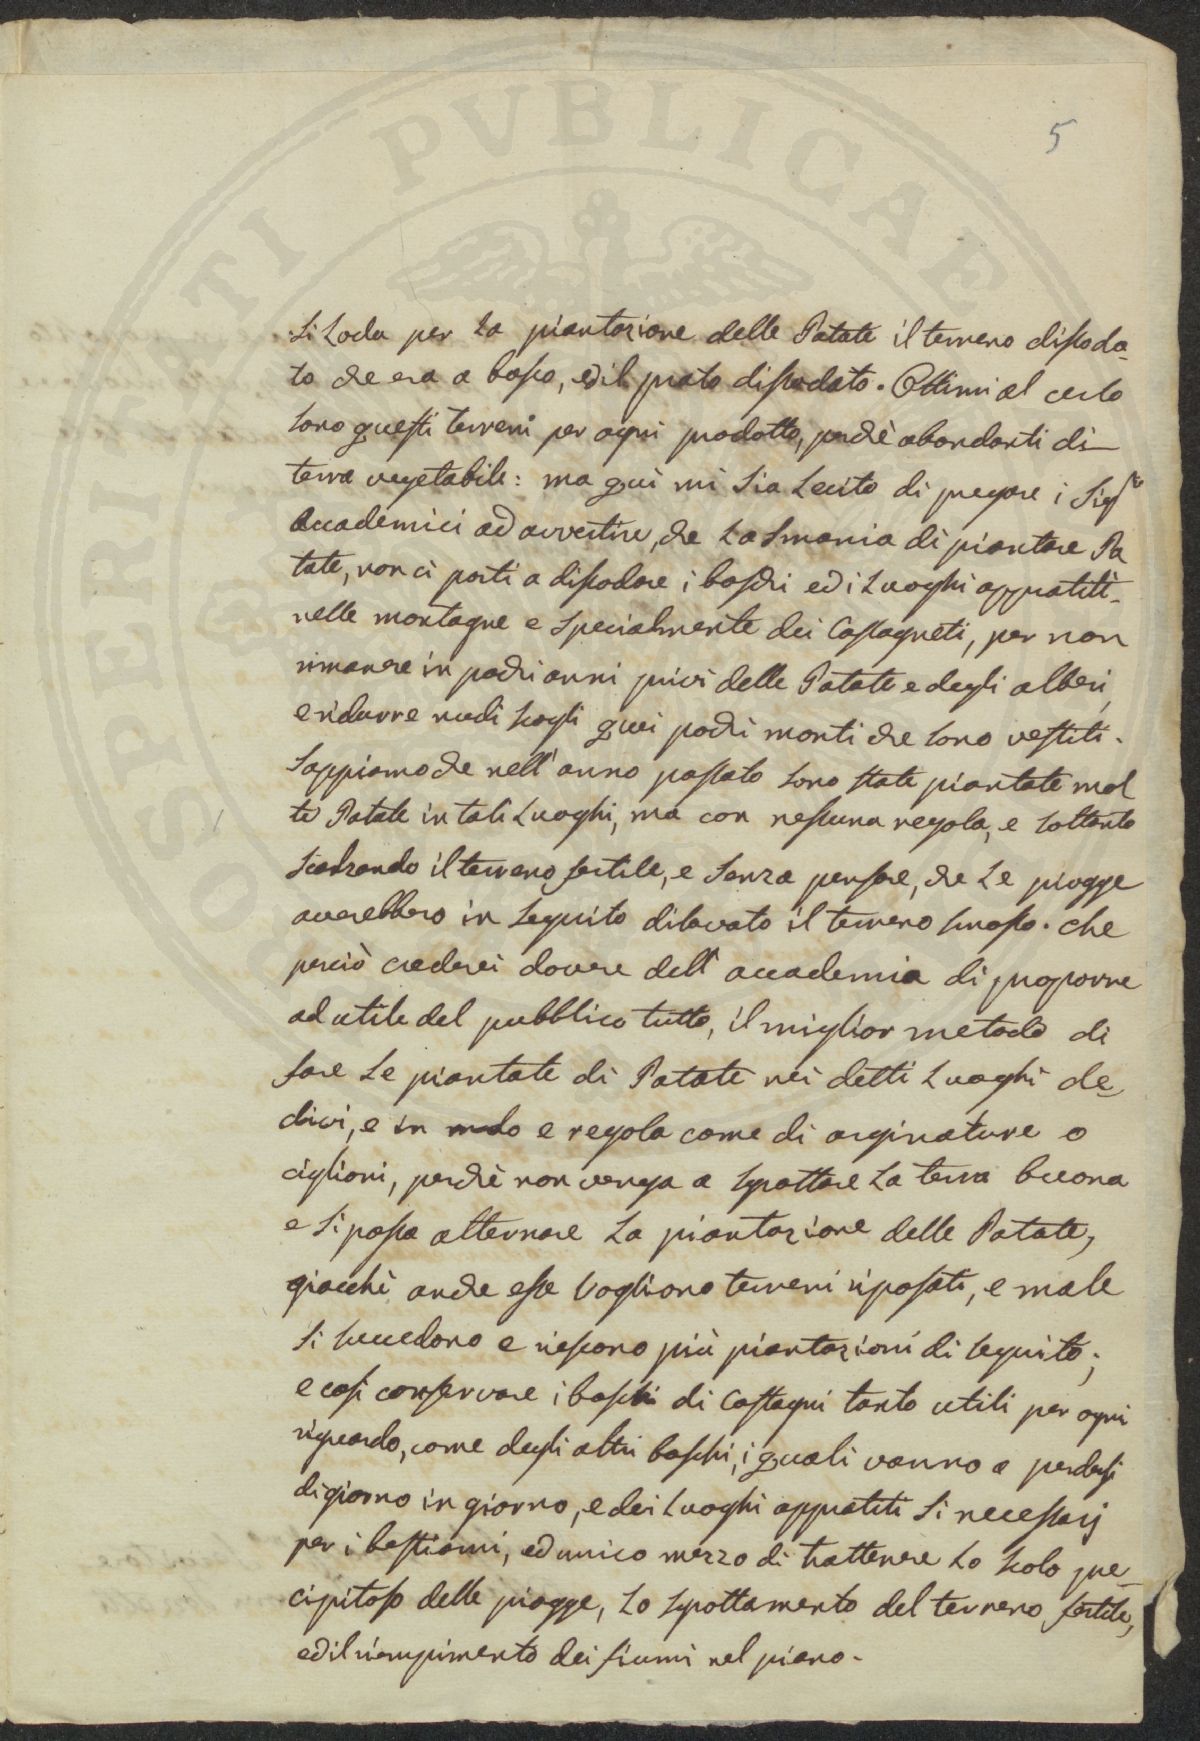 5
Si Loda per La piantazione delle Patate il terreno dissoda-
to che era a bosco, ed il prato dissodato. Ottimi al certo
sono questi terreni per ogni prodotto, perchè abondanti di
terra vegetabile: ma qui mi Sia Lecito di pregare i Sigri
Accademici ad avvertire, che La Smania di piantare Pa
tate, non ci porti a dissodare i boschi ed i Luoghi appratiti
nelle montagne e Specialmente dei Castagneti, per non
rimanere in pochi anni privi delle Patate e degli alberi,
e ridurre nudi scogli quei pochi monti che sono vestiti.
Sappiamo che nell' anno passato sono state piantate mol
te Patate in tali Luoghi, ma con nessuna regola, e soltanto
scalzando il terreno fertile, e senza pensare, che Le piogge
averebbero in seguito dilavato il terreno smosso. Che
perciò crederei dovere dell' accademia di proporre
ad utile del pubblico tutto, il miglior metodo di
fare Le piantate di Patate nei detti Luoghi de-
clivi, e in modo e regola come di arginature o
ciglioni, perchè non venga a spottare La terra buona
e Si possa alternare La piantazione delle Patate,
giacchè anche esse Vogliono terreni riposati, e male
Si succedono e riescono più piantazioni di seguito;
e così conservare i boschi di Castagni tanto utili per ogni
riguardo, come degli altri boschi, i quali vanno a perdersi
di giorno in giorno, e dei Luoghi appratiti Si necessarj
per i bestiami, ed unico mezzo di trattenere Lo scolo pre-
cipitoso delle piogge, Lo spottamento del terreno fertile,
ed il riempimento dei fiumi nel piano.